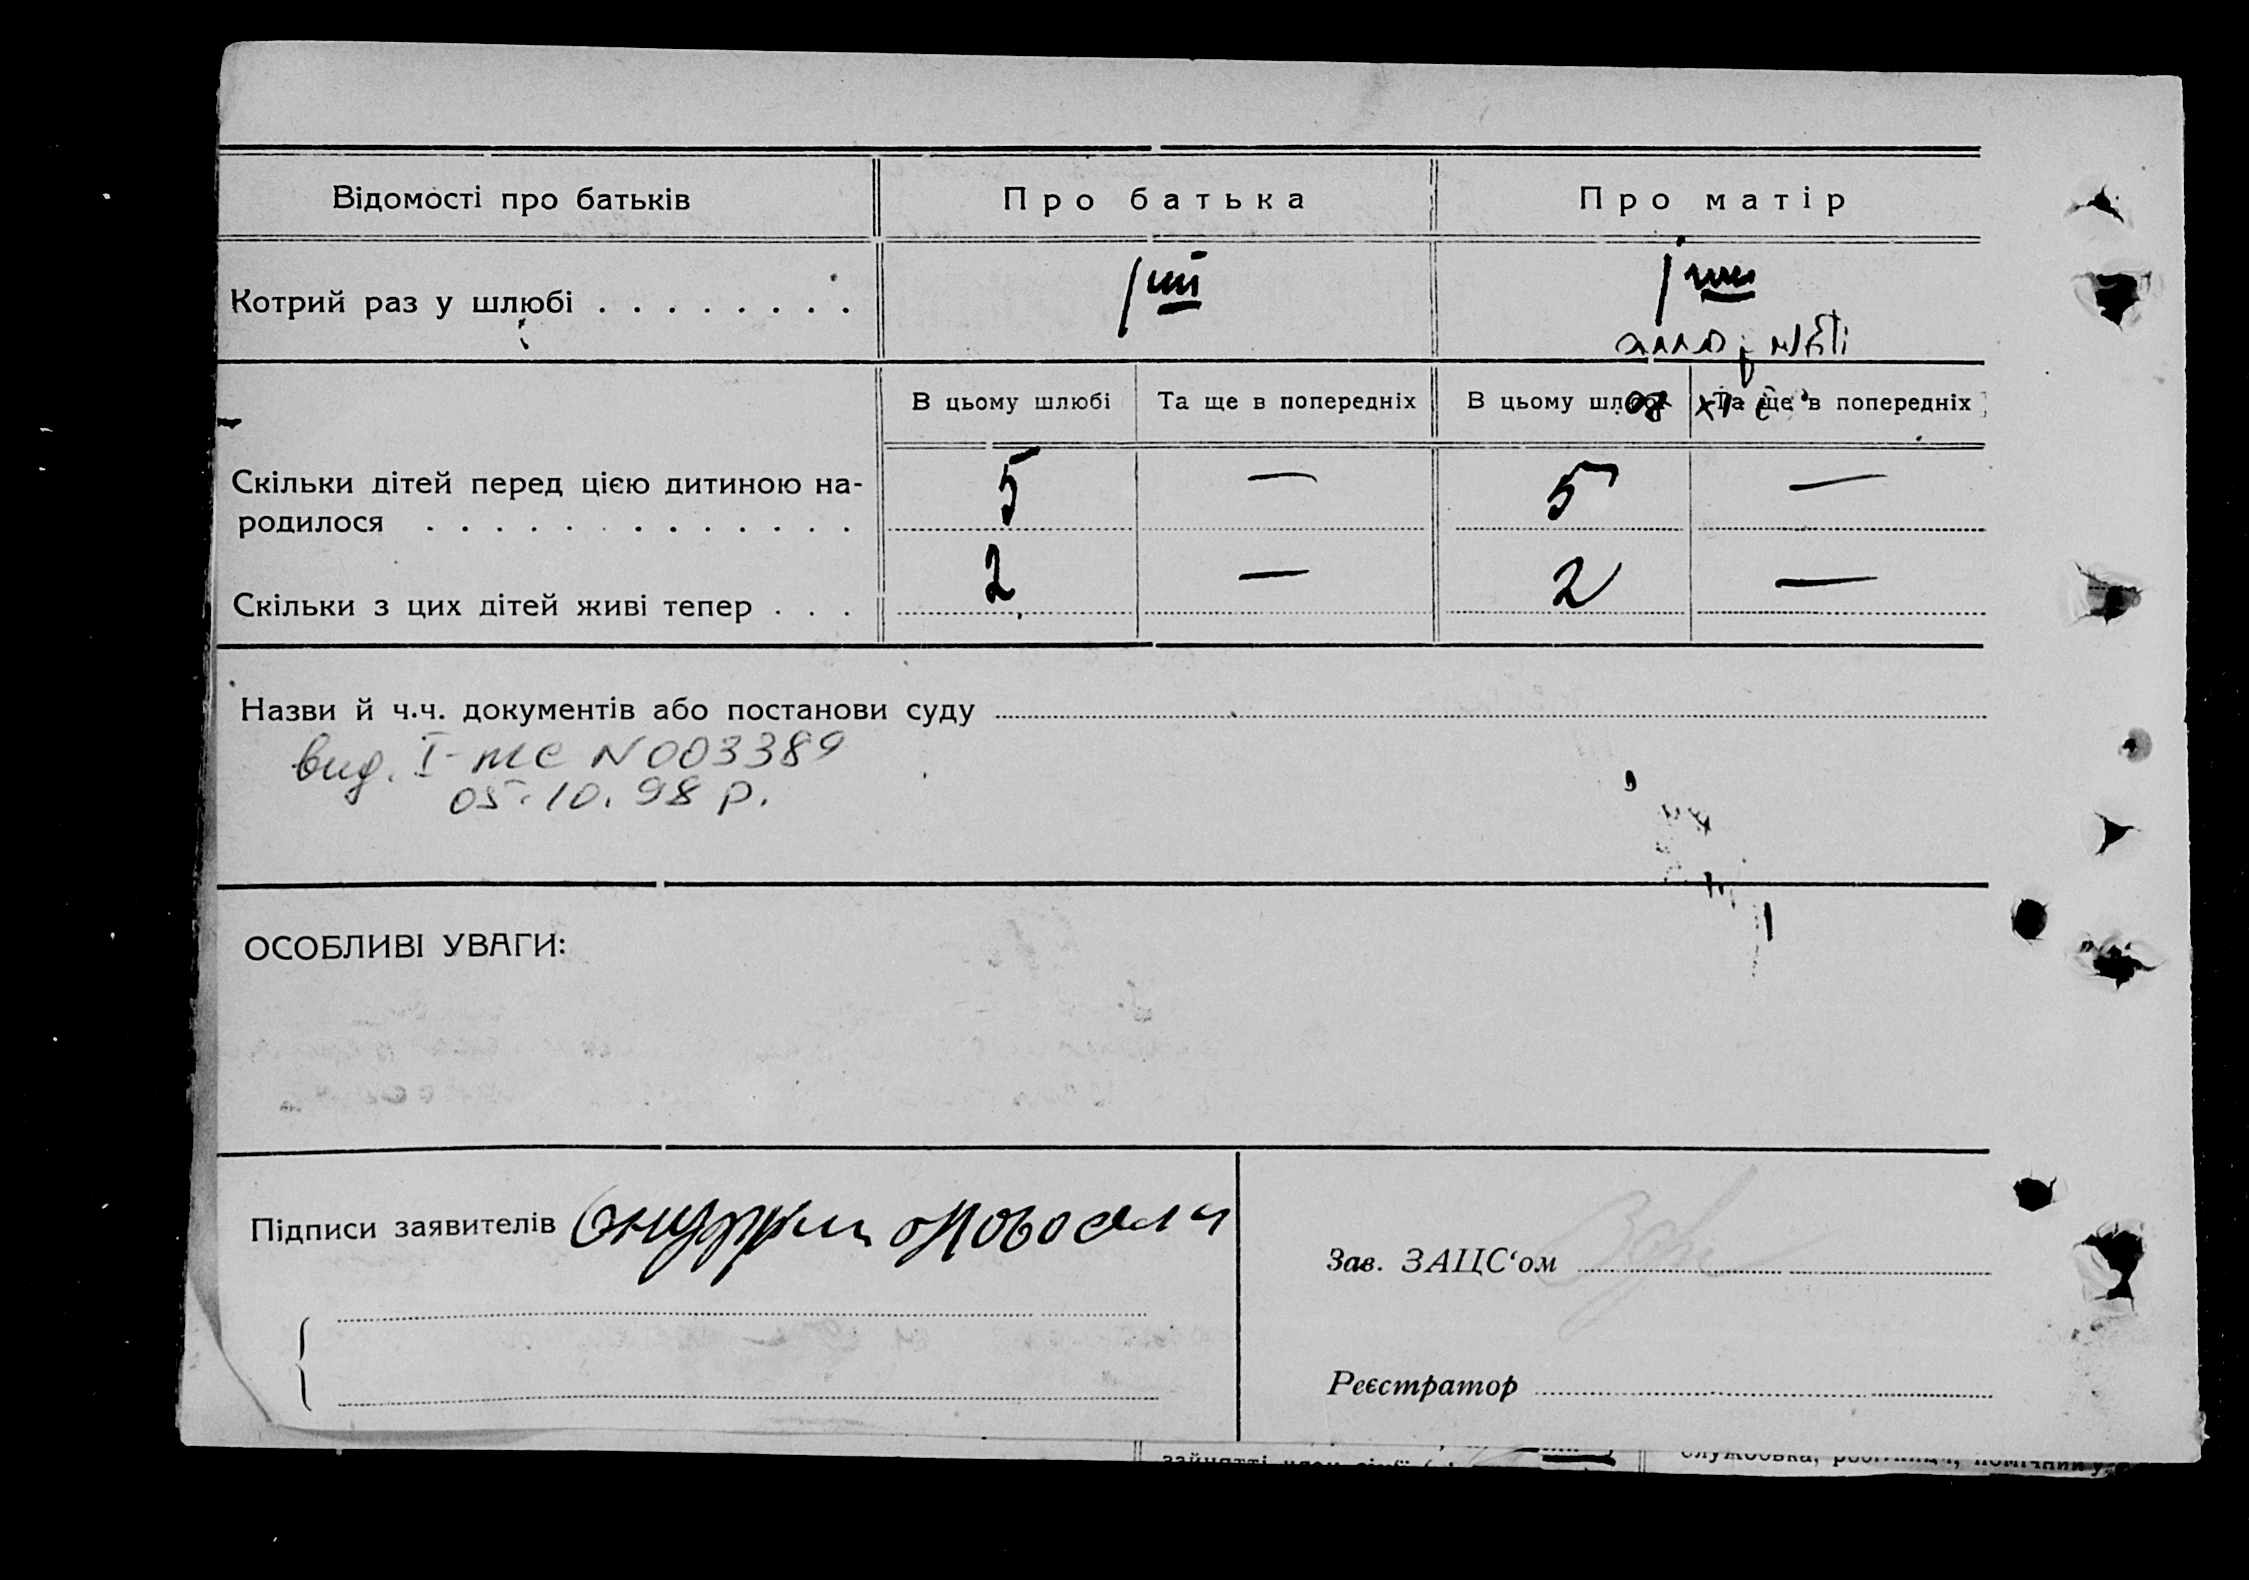 Відомості про батьків
Про батька
Про матір
Котрий раз у шлюбі . . . . . . . .
1ий
1ий
В цьому шлюбі
Та ще в попередніх
В цьому шлюбі
Та ще в попередніх
Скільки дітей перед цією дитиною на-
родилося . . . . . . . . . . . . .
5
—
5
—
Скільки з цих дітей живі тепер . . .
2
—
2
—
Назви й ч.ч. документів або постанови суду
вид. I-МС N 003389
05.10.98 р.
ОСОБЛИВІ УВАГИ:
Підписи заявителів
Зав. ЗАЦС‘ом
Реєстратор